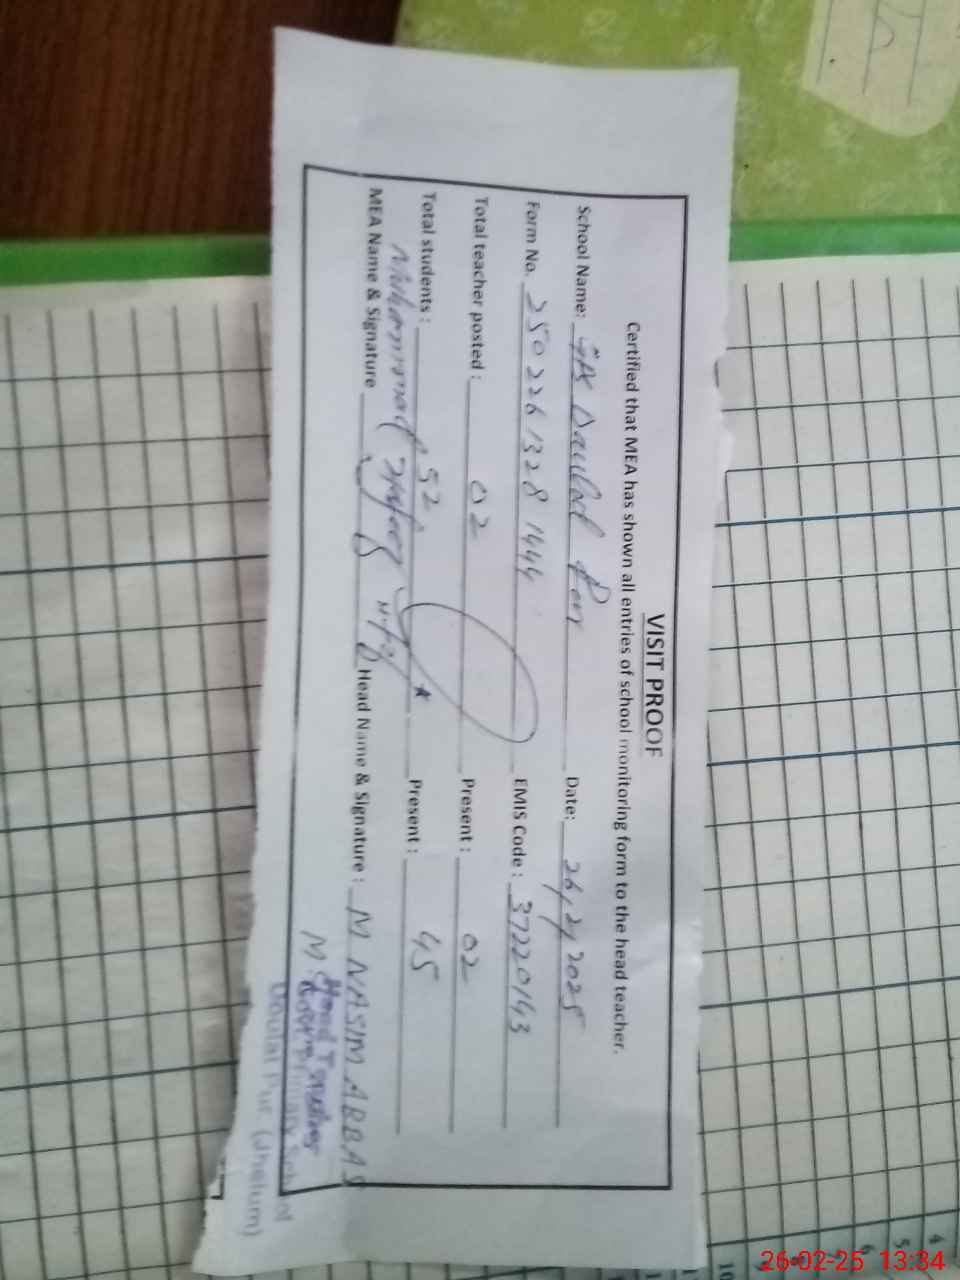 VISIT PROOF
Certified that MEA has shown all entries of school monitoring form to the head teacher.
School Name: GPS Daulat Pur Date: 26/2/2025
Form No. 250226 1328 1444 EMIS Code : 37220143
Total teacher posted : 02 Present : 02
Total students : 52 Present : 45
MEA Name & Signature Muhammad Head Name & Signature : M NASIM ABBAS
Head Teacher
Primary School
Doulat Pur (Jhelum)
26-02-25 13:34
4
5
6
10